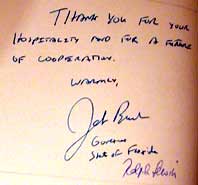 THANK YOU FOR YOUR
HOSPITALITY AND FOR A FUTURE
OF COOPERATION.
WARMLY,
Jeb Bush
Governor
State of Florida
Ralph